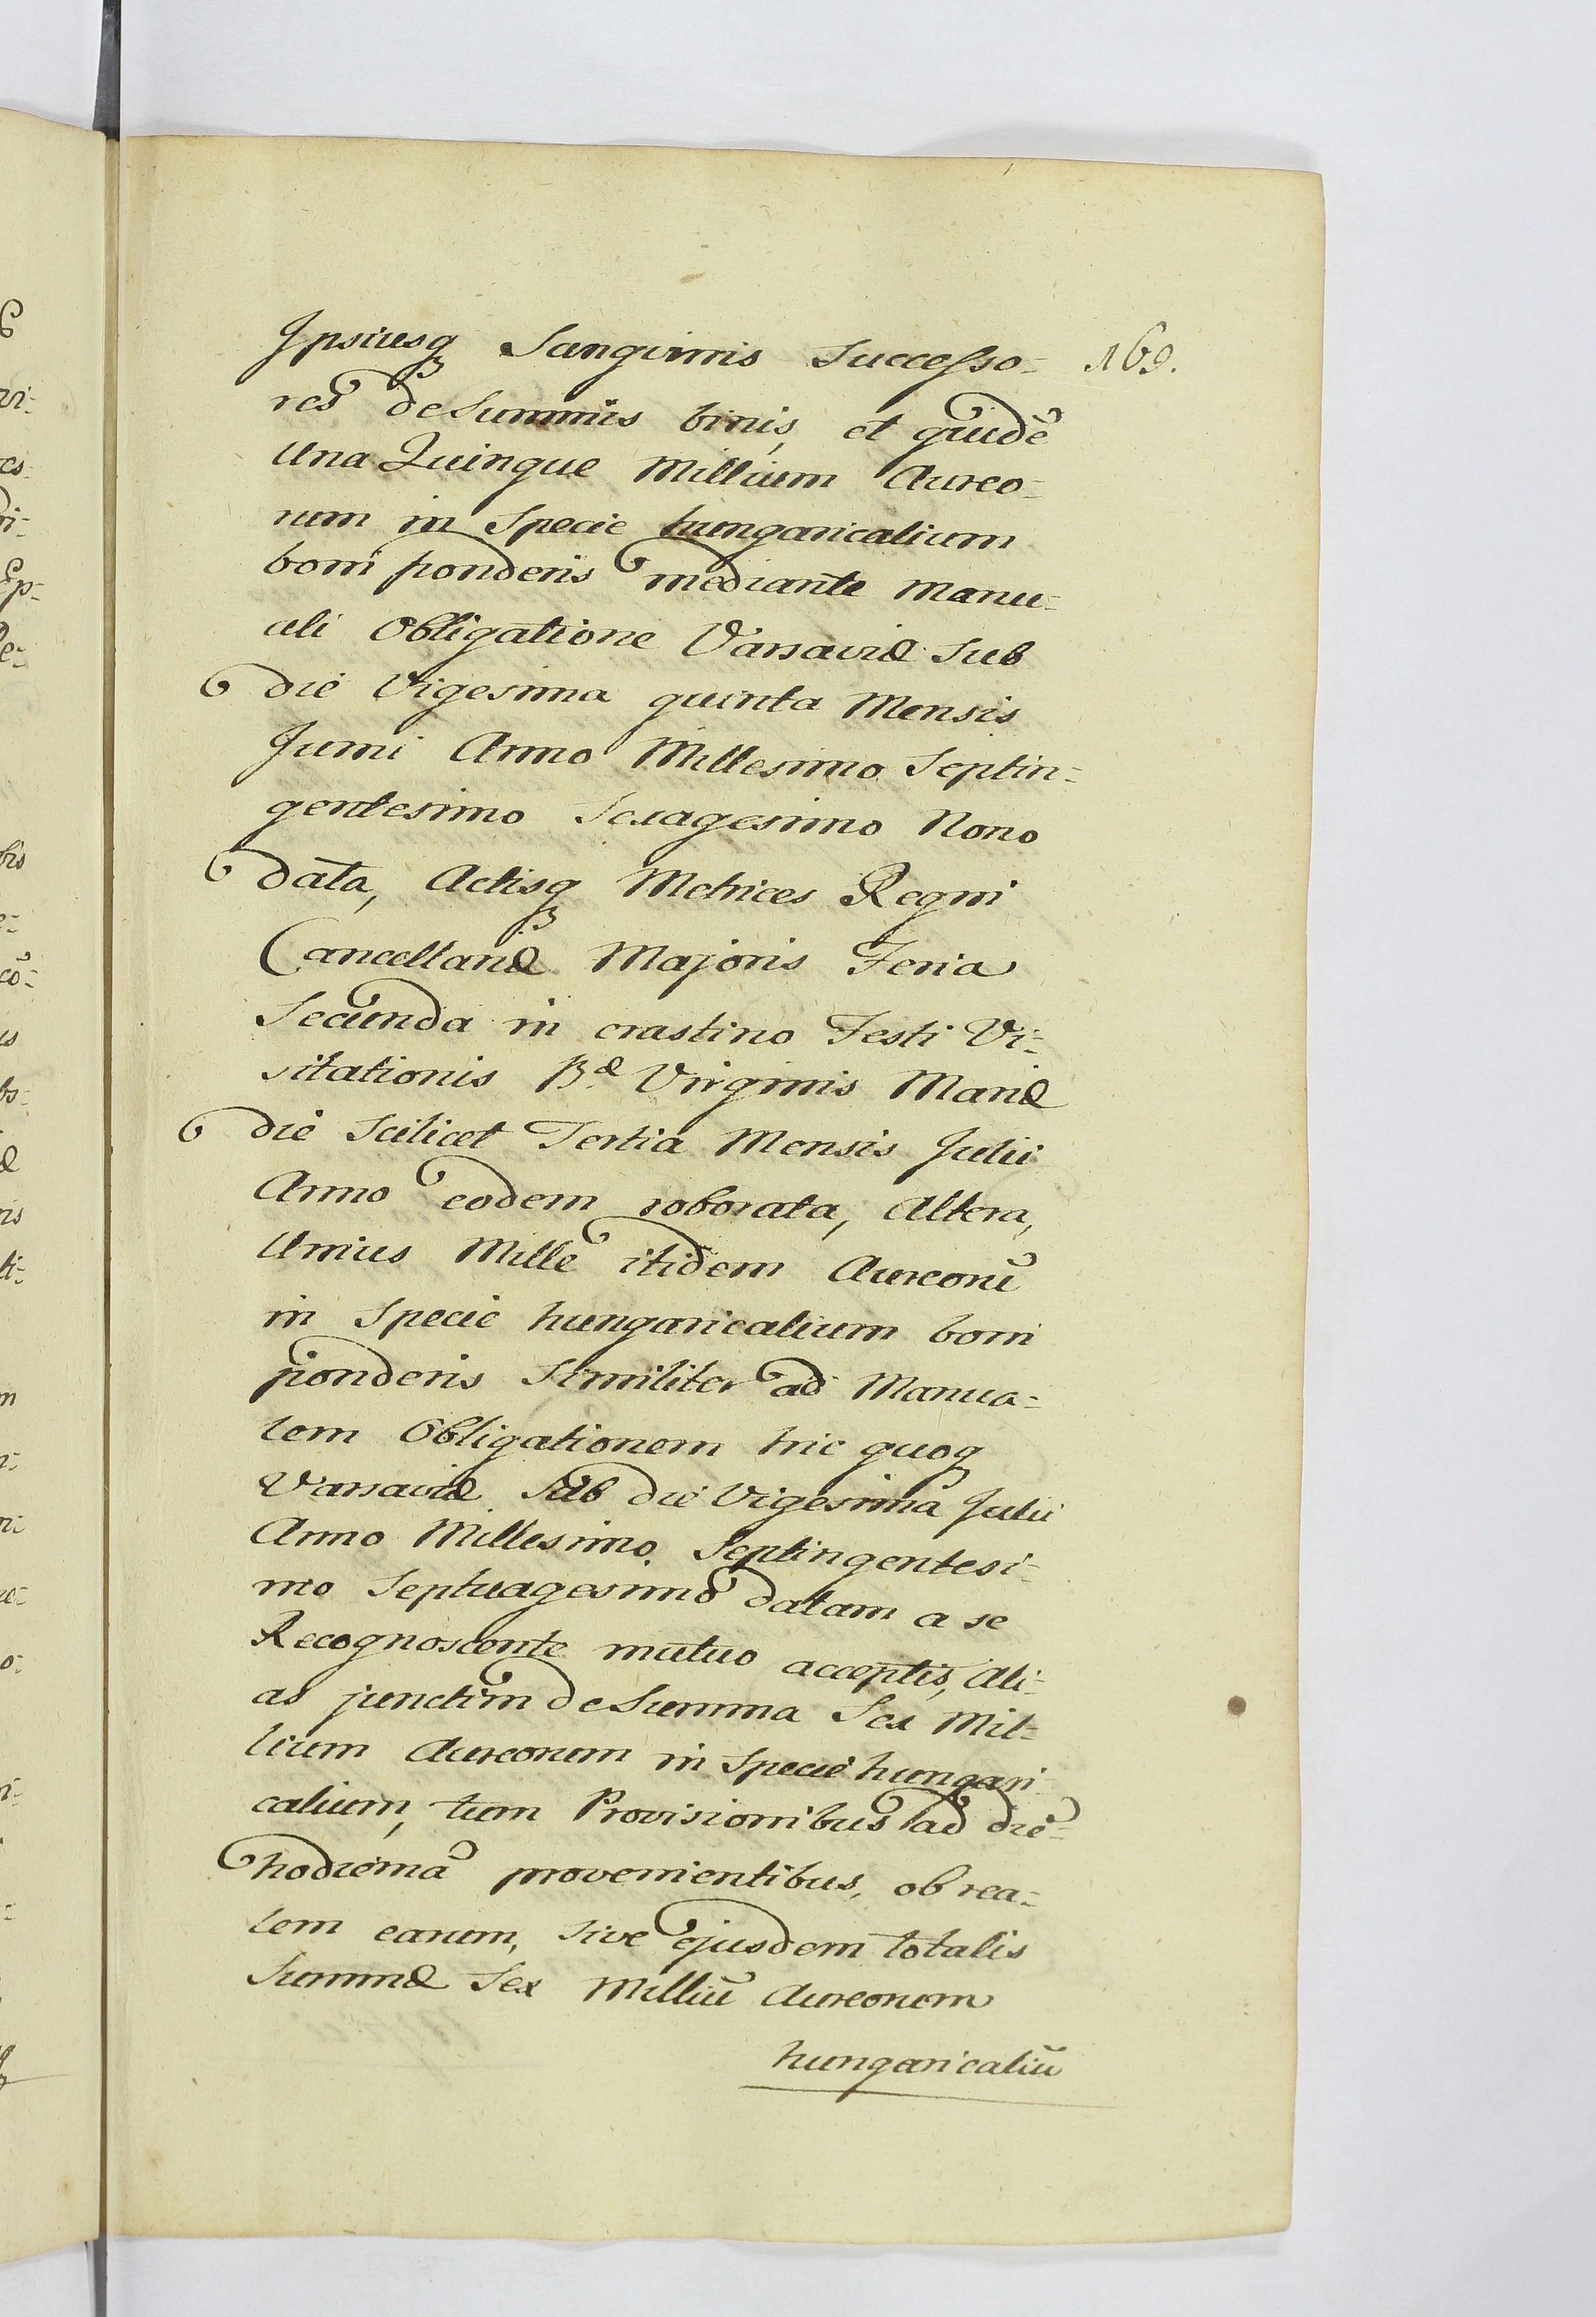 Ipsiusq₃ Sangvinis Successo- 169.
res de Summis binis, et quidē
Una Quinque Millium Aureo-
rum in Specie hungaricalium
boni ponderis mediante Manu-
ali Obligatione Varsaviæ Sub
die Vigesima quinta Mensis
Junii Anno Millesimo Septin-
gentesimo Sexagesimo Nono
data, Actisq₃ Metrices Regni
Cancellariæ Majoris Feria
Secunda in crastino Festi Vi-
sitationis B.æ Virginis Mariæ
die Scilicet Tertia Mensis Julii
Anno eodem roborata, Altera,
Unius Mille itidem Aureorū
in Specie hungaricalium boni
ponderis Similiter ad Manua-
lem Obligationem hic quoq₃
Varsaviæ Sub die Vigesima Julii
Anno Millesimo Septingentesi-
mo Septuagesimo datam a se
Recognoscente mutuo acceptis, Ali-
as junctim de Summa Sex Mil-
lium Aureorum in Specie hungari-
calium, tum Provisionibus ad diē-
hodiernā provenientibus, ob rea-
tem earum, Sive ejusdem totalis
Summæ Sex Milliū Aureorum
hungaricaliū